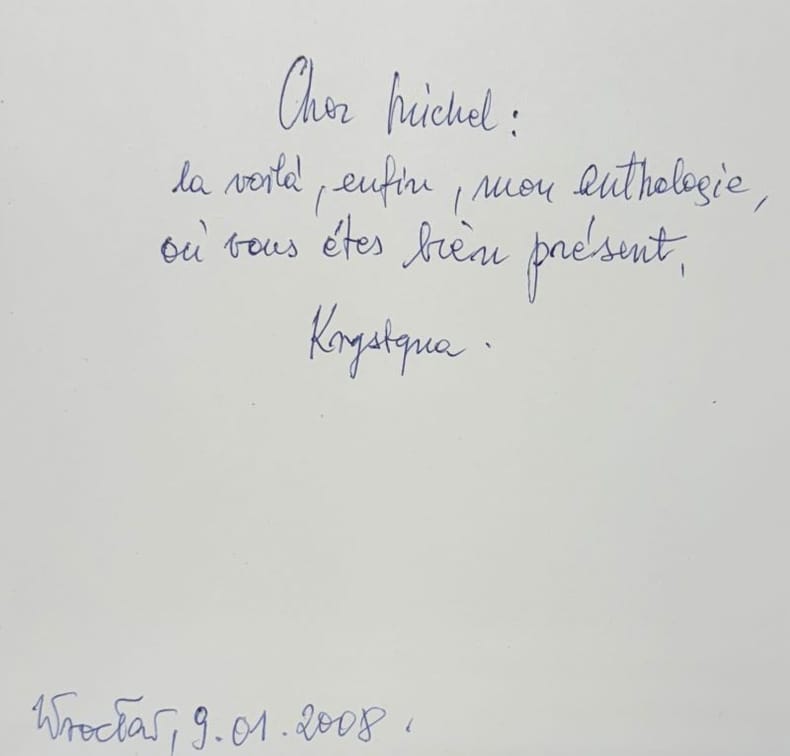 Cher Michel :
la voilà, enfin, mon anthologie,
où vous êtes bien présent,
Krystyna.
Wrocław, 9.01.2008.